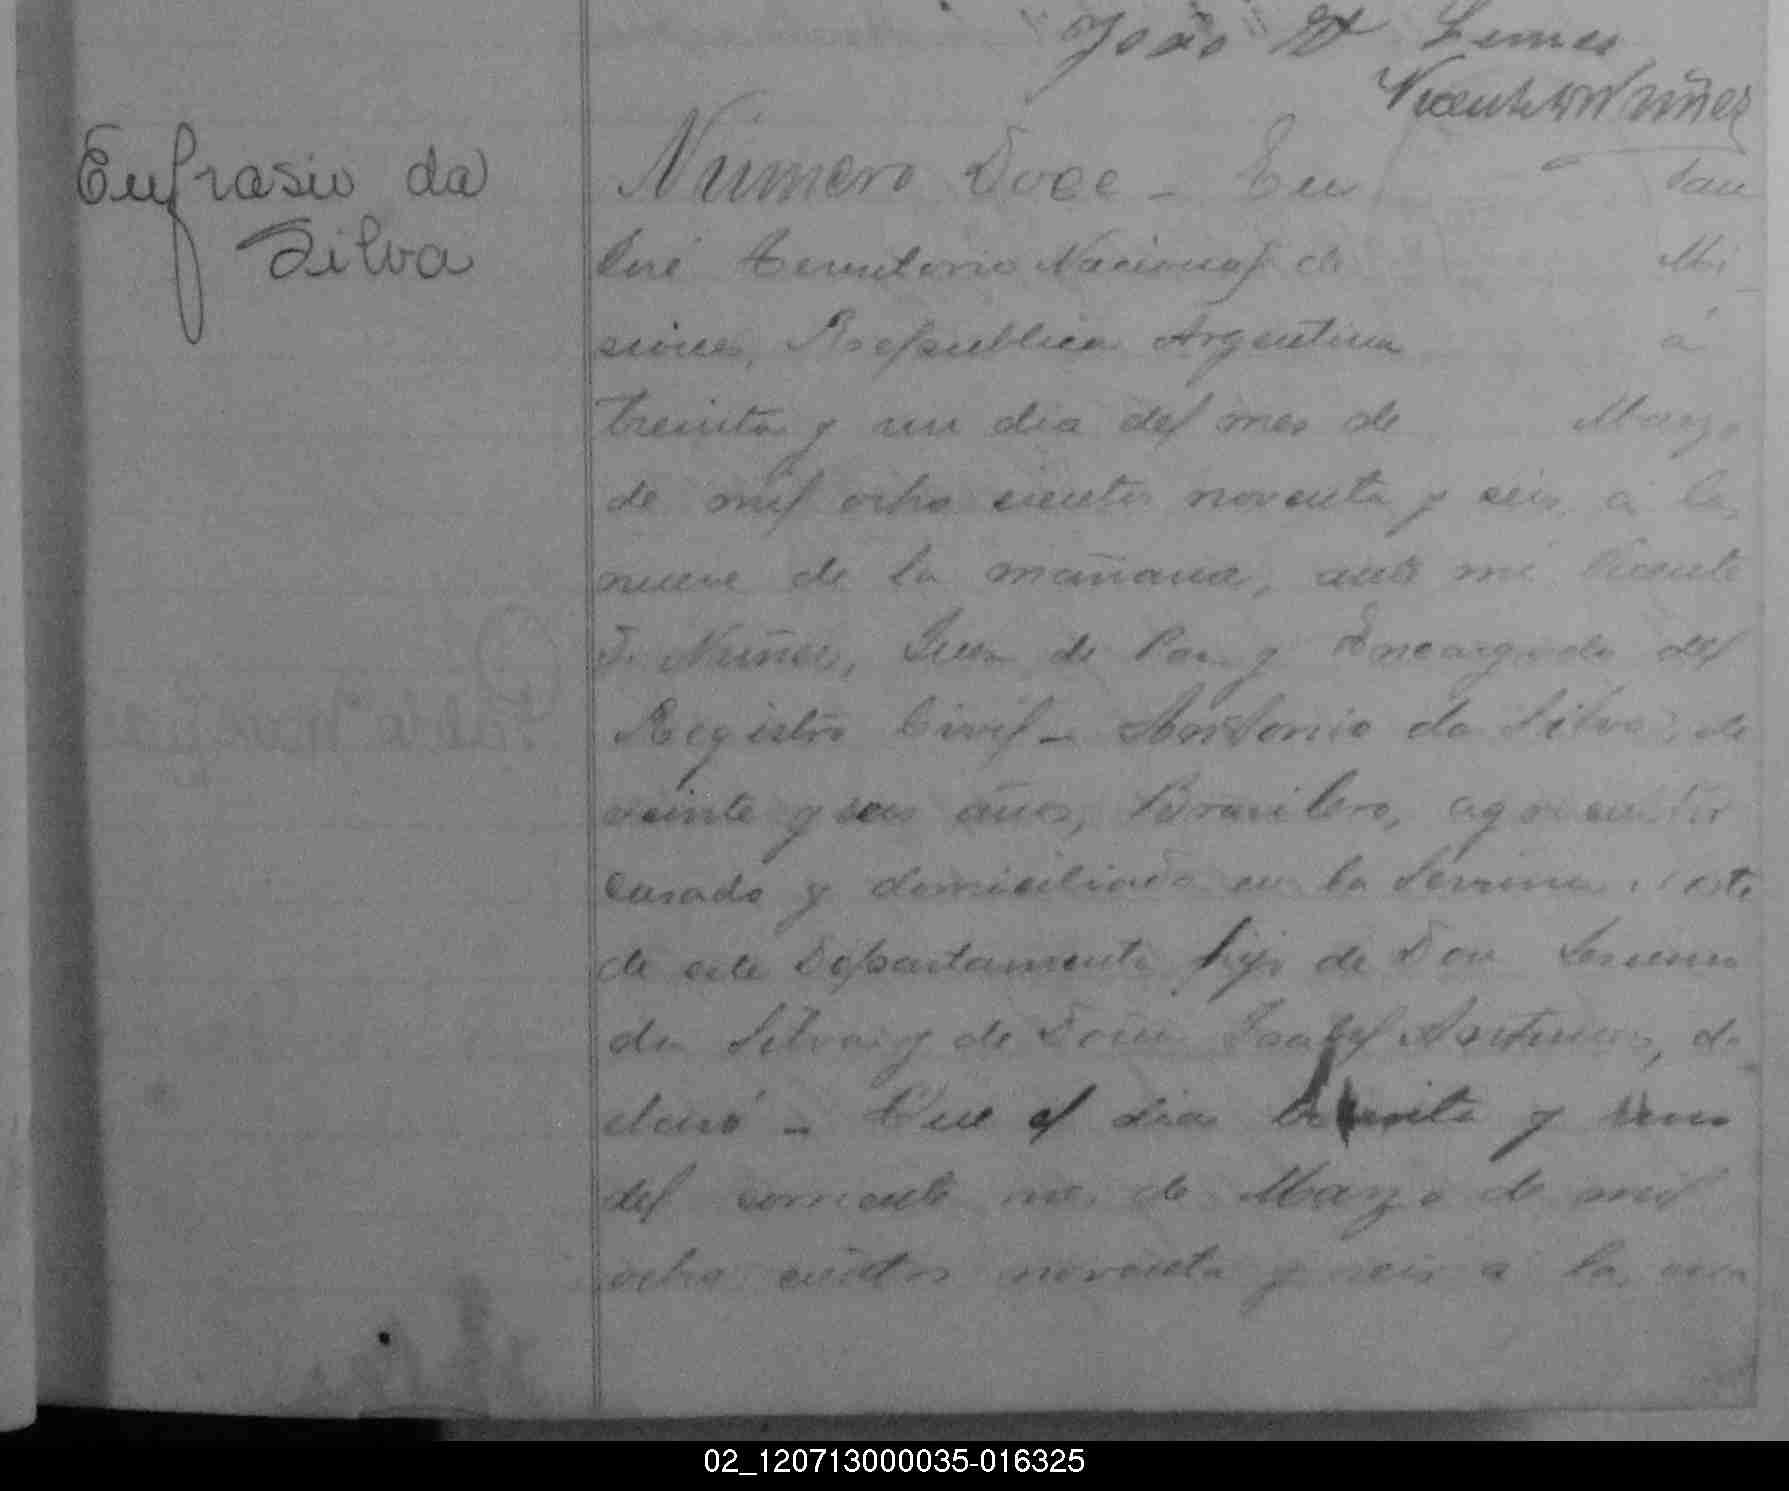 João Lemes
Vicente Nuñez
Eufrasio da
Silva
Número Doce - En San
José Territorio Nacional de Mi
siones, Republica Argentina á
treinta y un dia del mes de Marzo
de mil ocho cientos noventa y seis a las
nueve de la mañana, ante mi Vicente
F. Nuñez, Juez de Paz y Encargado del
Registro Civil - Antonio da Silva, de
veinte y seis años, Brasilero, agricultor
casado y domiciliado en la
de este Departamento hijo de Don
da Silva y de Doña Isabel Antunes, de
claró - Que el dia treinta y uno
del corriente mes de Marzo de mil
ocho cientos noventa y seis a la una
02_120713000035-016325